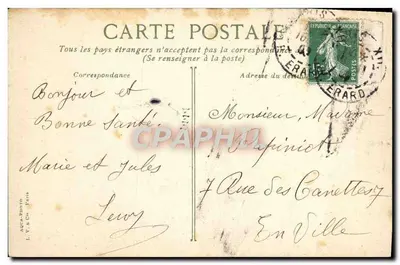 CARTE POSTALE
Tous les pays étrangers n'acceptent pas la correspondance
(Se renseigner à la poste)
Correspondance
Adresse du
Bonjour et
Bonne Santé
Marie et Jules
Levy
Monsieur, Madame
7 Rue des Canettes 7
En Ville
ERARD
POSTES
CPARAMA
L. V. & Cie - Paris